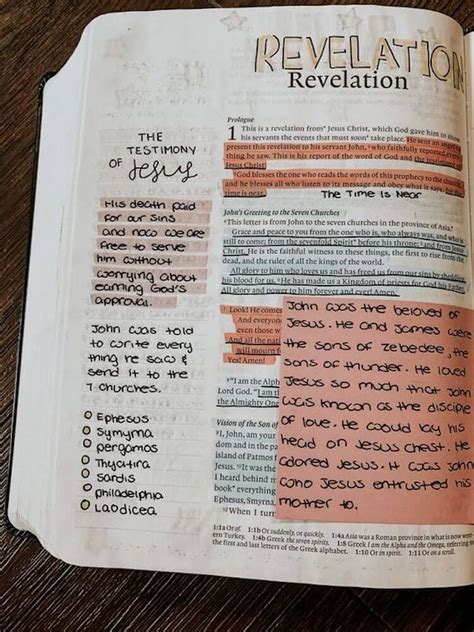 REVELATION
Revelation
THE
TESTIMONY
OF Jesus
His death paid
for our sins
and now we are
free to serve
him without
worrying about
earning God's
approval.
John was told
to write every
thing he saw &
send it to the
7 churches.
Ephesus
Symyrna
pergamos
Thyatira
sardis
philadelphia
Laodicea
Prologue
1 This is a revelation from* Jesus Christ, which God gave him to show
his servants the events that must soon* take place. He sent an angel to
present this revelation to his servant John, who faithfully reported every
thing he saw. This is his report of the word of God and the
Jesus Christ.
God blesses the one who reads the words of this prophecy to the church,
and he blesses all who listen to its message and obey what it says, for the
time is near.
The Time is Near
John's Greeting to the Seven Churches
This letter is from John to the seven churches in the province of Asia.*
Grace and peace to you from the one who is, who always was, and who is
still to come; from the sevenfold Spirit* before his throne; and from Jesus
Christ. He is the faithful witness to these things, the first to rise from the
dead, and the ruler of all the kings of the world.
All glory to him who loves us and has freed us from our sins by shedding
his blood for us. He has made us a Kingdom of priests for God his Father.
All glory and power to him forever and ever! Amen.
Look! He comes
And everyone
even those w
And all the nati
will mourn f
Yes! Amen!
"I am the Alph
Lord God. "I am
the Almighty One
Vision of the Son of
I, John, am your
and in God's
island of Patmos f
Jesus. It was the
I heard behind m
book* everything
Ephesus, Smyrna,
When I turn
John was the beloved of
Jesus. He and James were
the sons of zebedee, the
sons of thunder. He loved
Jesus so much that John
was known as the disciple
of love. He would lay his
head on Jesus chest. He
adored Jesus. It was John
who Jesus entrusted his
mother to.
1:1a Or of. 1:1b Or suddenly, or quickly. 1:4a Asia was a Roman province in what is now west-
ern Turkey. 1:4b Greek the seven spirits. 1:8 Greek I am the Alpha and the Omega, referring to
the first and last letters of the Greek alphabet. 1:10 Or in spirit. 1:11 Or on a scroll.